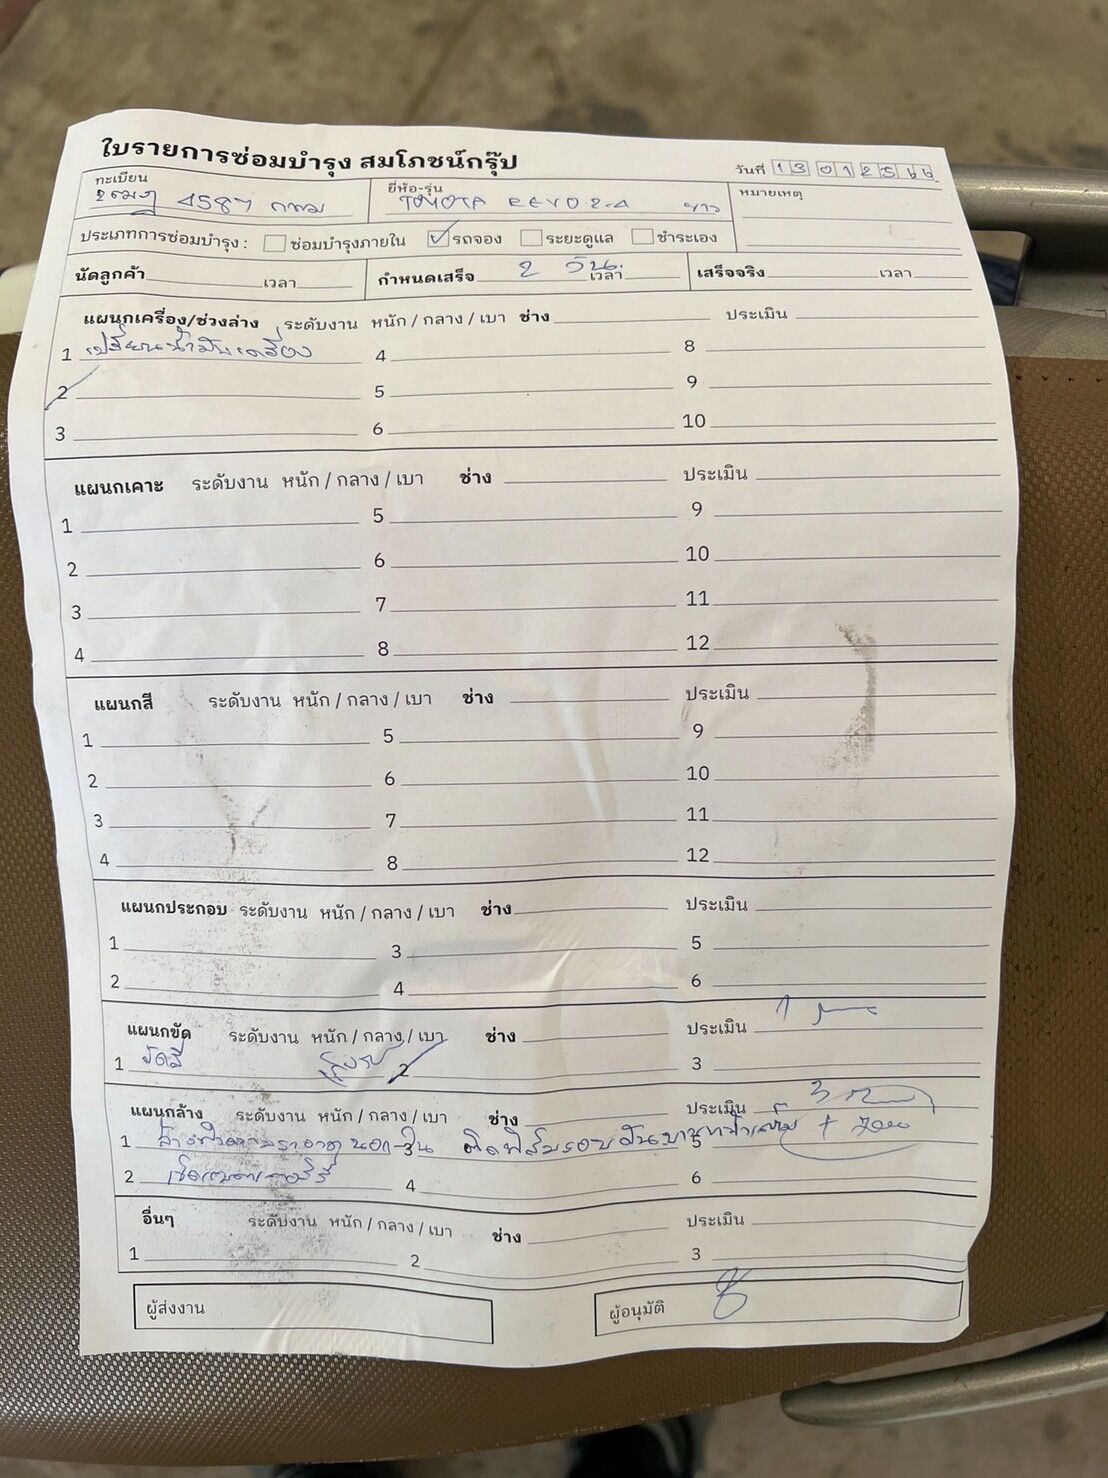 ใบรายการซ่อมบำรุง สมโภชน์กรุ๊ป
วันที่ 13 01 2566
ทะเบียน 4587 กทม ยี่ห้อ-รุ่น TOYOTA REVO 2.4 ขาว หมายเหตุ
ประเภทการซ่อมบำรุง : ซ่อมบำรุงภายใน รถจอง ระยะดูแล ชำระเอง
นัดลูกค้า เวลา กำหนดเสร็จ 2 วัน. เวลา เสร็จจริง เวลา
แผนกเครื่อง/ช่วงล่าง ระดับงาน หนัก / กลาง / เบา ช่าง ประเมิน
1 เปลี่ยนน้ำมันเครื่อง 4 8
2 5 9
3 6 10
แผนกเคาะ ระดับงาน หนัก / กลาง / เบา ช่าง ประเมิน
1 5 9
2 6 10
3 7 11
4 8 12
แผนกสี ระดับงาน หนัก / กลาง / เบา ช่าง ประเมิน
1 5 9
2 6 10
3 7 11
4 8 12
แผนกประกอบ ระดับงาน หนัก / กลาง / เบา ช่าง ประเมิน
1 3 5
2 4 6
แผนกขัด ระดับงาน หนัก / กลาง / เบา ช่าง ประเมิน 1
1 ขัดสี 2 3
แผนกล้าง ระดับงาน หนัก / กลาง / เบา ช่าง ประเมิน 3
1 ล้างทำความสะอาด นอก-ใน 3 ติดฟิล์มรอบคัน 5
2 4 6
อื่นๆ ระดับงาน หนัก / กลาง / เบา ช่าง ประเมิน
1 2 3
ผู้ส่งงาน ผู้อนุมัติ